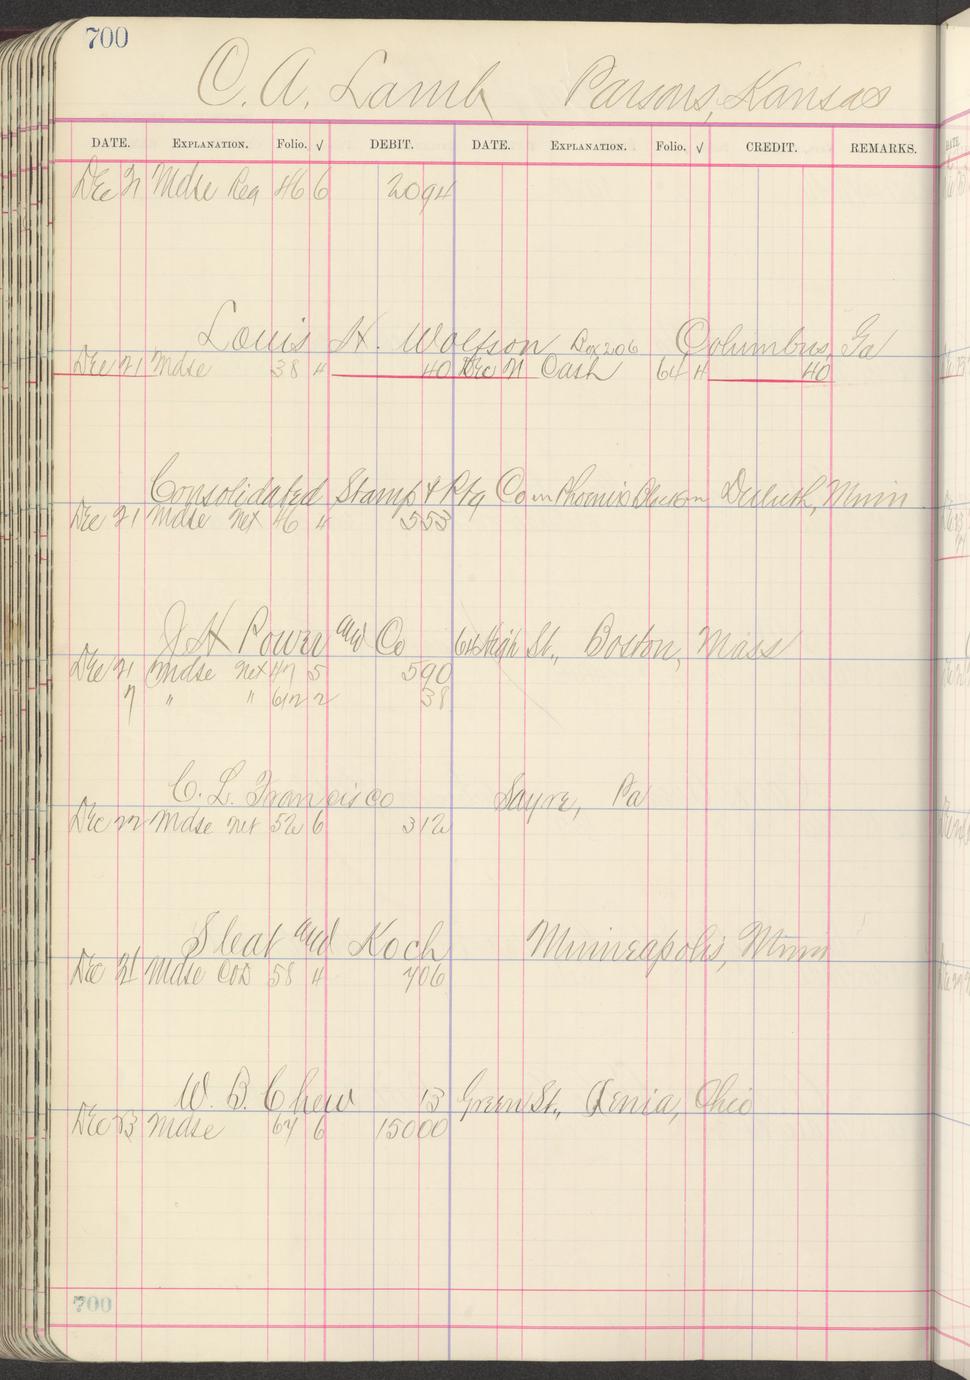 700
C. A. Lamb Parsons, Kansas
DATE. EXPLANATION. Folio. √ DEBIT. DATE. EXPLANATION. Folio. √ CREDIT. REMARKS.
Dec 21 Mdse Reg 46 6 2094
Louis H. Wolfson Box 206 Columbus, Ga
Dec 21 Mdse 38 4 40 Dec 21 Cash 64 4 40
Consolidated Stamp & Ptg Co Duluth, Minn
Dec 21 Mdse Net 46 4 553
J H Power and Co 64 High St., Boston, Mass
Dec 21 Mdse Net 47 5 590
" " 612 2 38
C. L. Francisco Sayre, Pa
Dec 22 Mdse net 52 6 312
Sleat and Koch Minneapolis, Minn
Dec 21 Mdse COD 58 4 706
W. B. Chew 13 Green St., Xenia, Ohio
Dec 23 Mdse 67 6 15000
700